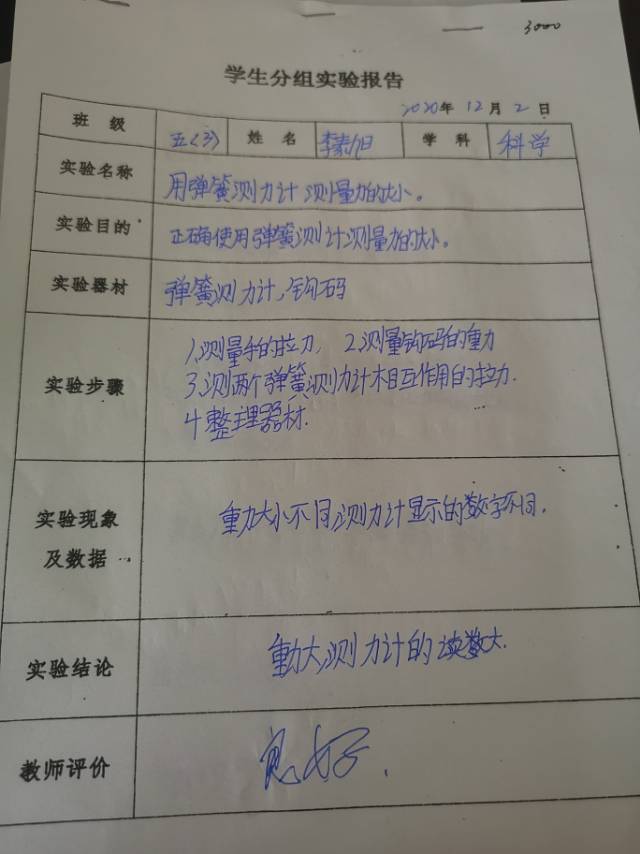 3000
学生分组实验报告
2020年 12月 2日
班 级 五(3) 姓 名 李 旭 学 科 科学
实验名称 用弹簧测力计测量力的大小。
实验目的 正确使用弹簧测计测量力的大小。
实验器材 弹簧测力计,钩码
1.测量手的拉力, 2测量钩码的重力
实验步骤 3.测两个弹簧测力计相互作用的拉力.
4整理器材.
实验现象 重力大小不同,测力计显示的数字不同.
及数据
实验结论 重力大,测力计的读数大.
教师评价 良好.